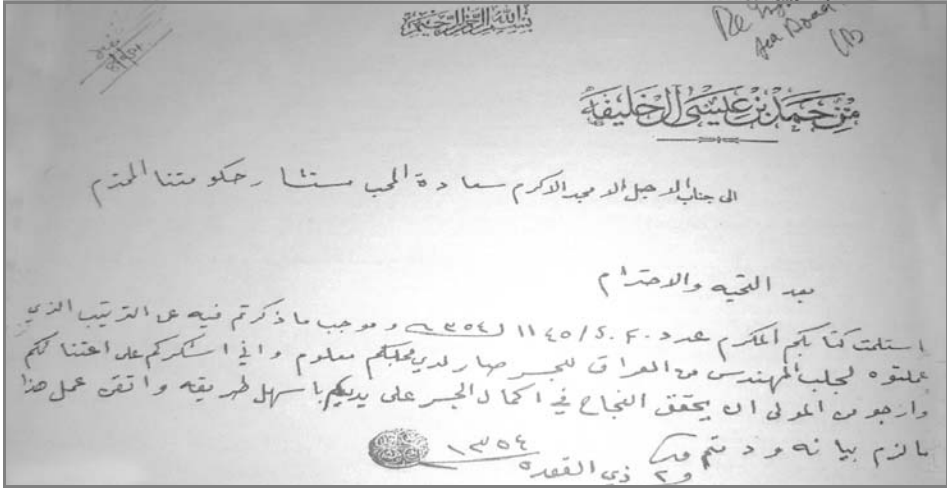 بسم الله الرحمن الرحيم
Re
Sea Road
من حمد بن عيسى آل خليفة
الى جناب الاجل الامجد الاكرم سعادة المحب مستشار حكومتنا المحترم
بعد التحيه والاحترام
استلمت كتابكم المكرم عدد ١١٤٥/ ١٣٥٤ و موجب ما ذكرتم فيه عن الترتيب الذي
عملتوه لجلب المهندس من العراق للجسر صار لدي محبكم معلوم و اني اشكركم على اعتنائكم
وارجو من المولى ان يحقق النجاح في اكمال الجسر على يديكم باسهل طريقه واتقن عمل هذا
مالزم بيانه ودمتم
ذي القعده ١٣٥٤